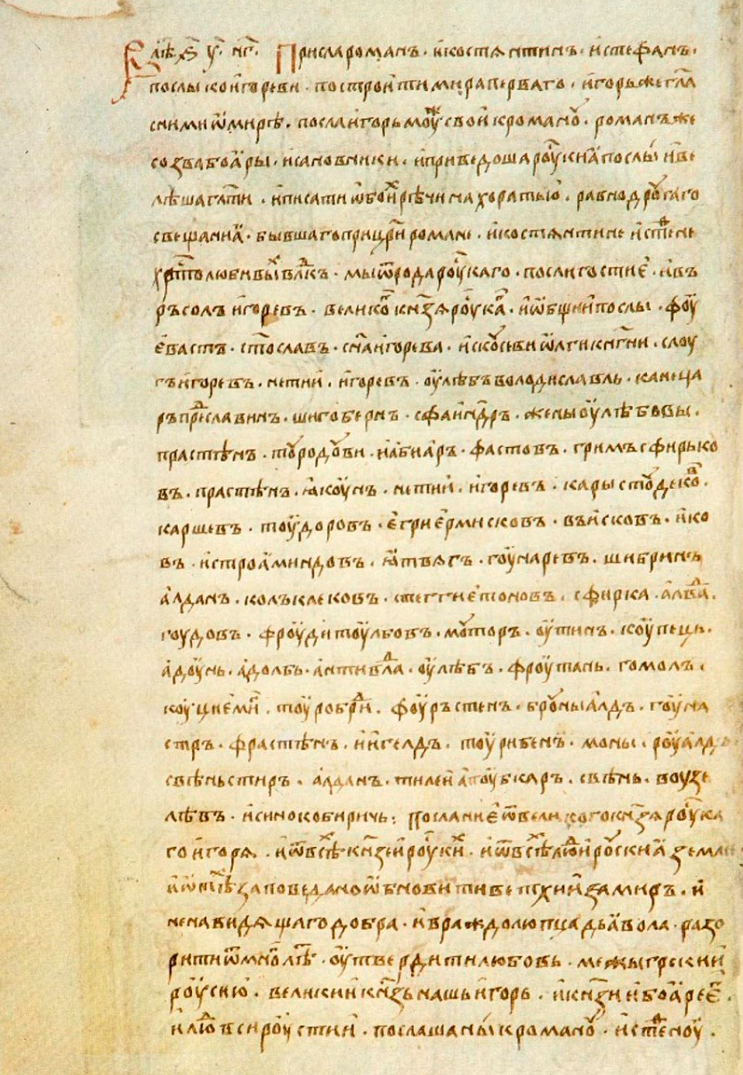 В лѣт҃ ҂ѕ҃ у҃ н҃г · Присла романъ · и костянтинъ · и стефанъ ·
послы ко игореви · построити мира перваго · игорь же гл҃а
с ними ѡ мирѣ · посла игорь моужⷤ свои к романоу · романъ же
созва боары · и сановники · и приведоша роускиа послы и ве
лѣша гл҃ати · и писати ѡбоихъ рѣчи на хоратью · равно дроугаго
свещаниа · бывшаго при цр҃и романе · и костянтине и стеⷴне
хрⷭ҇толюбивыⷯ влⷣкъ · мы ѿ рода роускаго · посли гостие · ивъ
ръ солъ игоревъ · великоⷢ кн҃зя роускаⷢ · и ѡбщии послы · воу
евастъ · ст҃ославъ · сн҃а игорева · искоусеви ѡлги кн҃гни · слоу
гъ игоревъ · нетии · игоревъ · оулѣбъ володиславль · каница
ръ преⷣславинъ · шигобернъ · сфаиндръ · жены оулѣбовы ·
прастѣнъ · тоуродоуви · либиаръ · фастовъ · гримъ сфирько
въ · прастѣнъ · ꙗкоунъ · нетии · игоревъ · кары стоудекоⷡ ·
каршевъ · тоудоровъ · егриермисковъ · въисковъ · ико
въ · истроаминдовъ · ꙗтвягъ · гоунаревъ · шибринъ
алданъ · колъклековъ · стеггиетоновъ · сфирка · алваⷣ ·
гоудовъ · фроуди тоульбовъ · моутор · оутинъ · коупець ·
адоунь · адолбь · антивлаⷣ · оулѣбъ · фроутань · гомолъ ·
коуци емиⷢ · тоуробриⷣ · фоуръстенъ · броуны алдъ · гоуна
стръ · фрастѣнъ · ингелдъ · тоурибенъ · моны · роуалдъ
свѣньстир · алданъ · тилеи апоубкаръ · свѣнь · воузе
лѣвъ · и синокобиричь · послание ѿ великого кн҃зя роуска
го игоря · и ѿ всѣⷯ кн҃зеи роускиⷯ · и ѿ всѣⷯ люⷣи роускиа земле
и ѿ тѣⷯ заповедано ѡбновити ветхии замиръ · и
ненавидящаго добра · и враждолюпца дьавола · разо
рити ѿ мноⷢ лѣⷮ · оутвердити любовь · межы греки и
роусию · великии кн҃зь нашь игорь · и кн҃зи и боаре еⷢ ·
и люⷣе вси роустии · послаша ны к романоу · и стеⷴноу ·